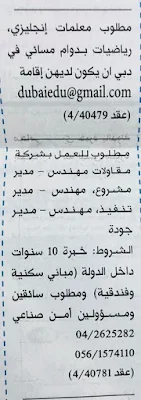 مطلوب معلمات إنجليزي،
رياضيات بدوام مسائي في
دبي ان يكون لديهن إقامة
dubaiedu@gmail.com
(عقد 4/40479)
مطلوب للعمل بشركة
مقاولات مهندس - مدير
مشروع، مهندس - مدير
تنفيذ، مهندس - مدير
جودة
الشروط: خبرة 10 سنوات
داخل الدولة (مباني سكنية
وفندقية) ومطلوب سائقين
ومسؤولين أمن صناعي
04/2625282
056/1574110
(عقد 4/40781)